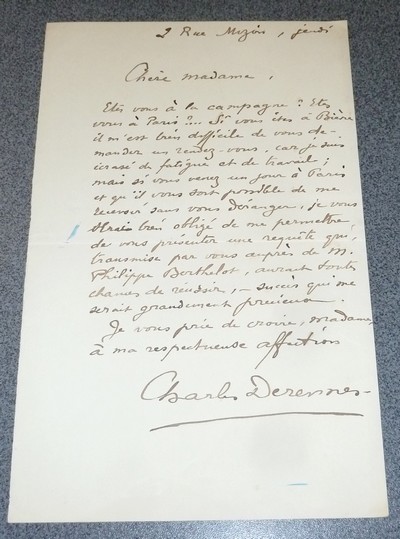 2 Rue Mizon, jeudi
Chère madame,
Etes vous à la campagne ? Etes
vous à Paris ?... Si vous êtes à Bièvre
il m'est très difficile de vous de-
mander un rendez-vous, car je suis
écrasé de fatigue et de travail ;
mais si vous venez un jour à Paris
et qu'il vous soit possible de me
recevoir sans vous déranger, je vous
serais bien obligé de me permettre
de vous présenter une requête qui,
transmise par vous auprès de M.
Philippe Berthelot, aurait toutes
chances de réussir, – succès qui me
serait grandement précieux.
Je vous prie de croire, madame,
à ma respectueuse affection
Charles Derennes